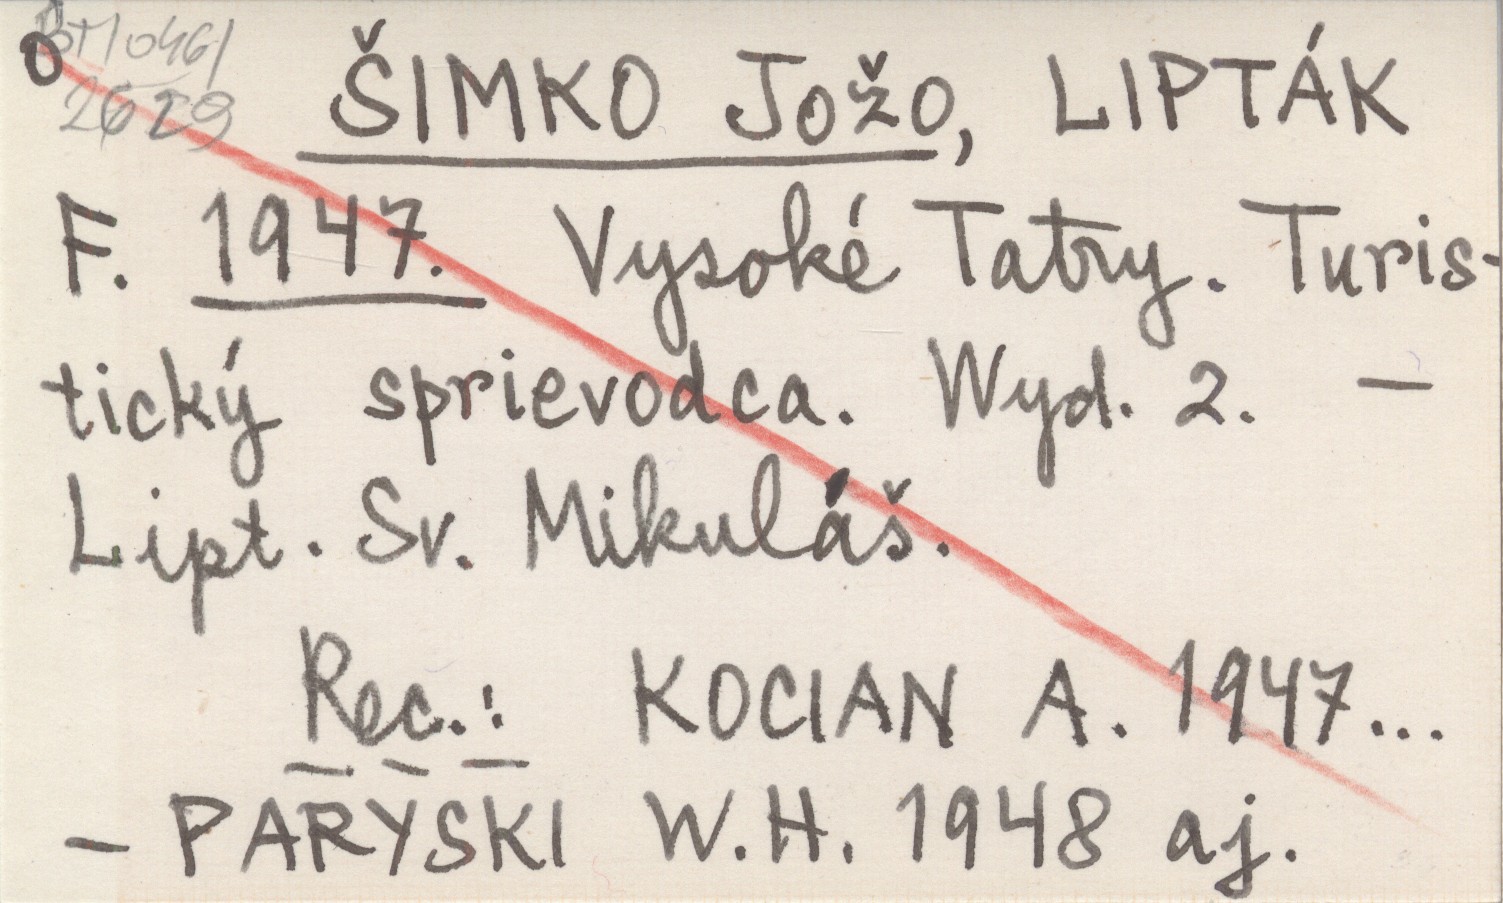 BTM 0461
0
2629
ŠIMKO Jožo, LIPTÁK
F. 1947. Vysoké Tatry. Turis-
tický sprievodca. Wyd. 2. —
Lipt. Sv. Mikuláš.
Rec.: KOCIAN A. 1947...
— PARYSKI W.H. 1948 aj.